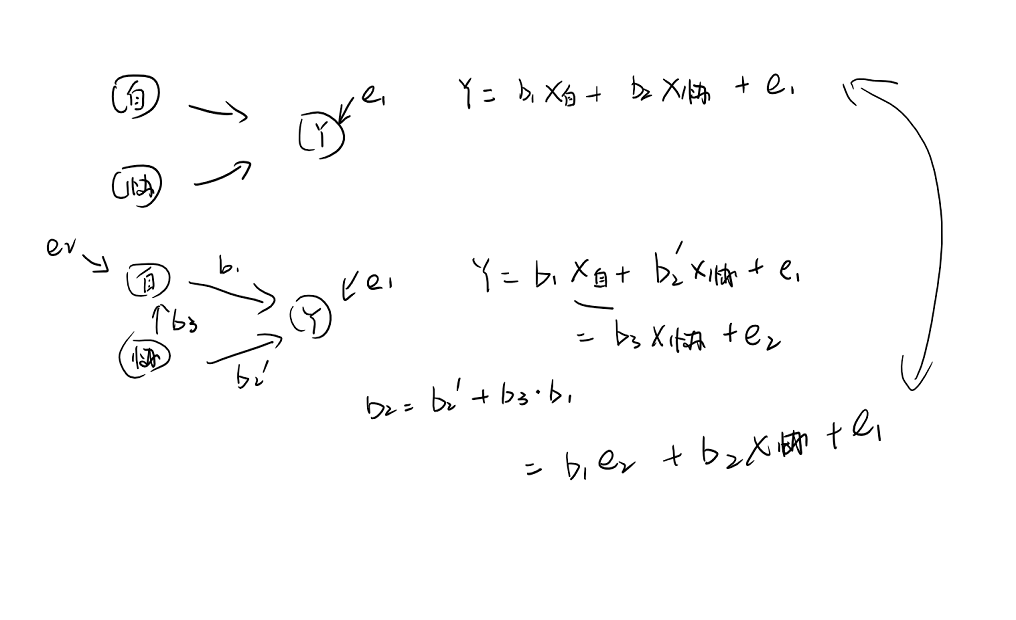 自
Y
e₁
Y = b₁ X自 + b₂ X协 + e₁
协
e₂
自
b₁
Y
e₁
Y = b₁ X自 + b₂' X协 + e₁
b₃
= b₃ X协 + e₂
协
b₂'
b₂ = b₂' + b₃ · b₁
= b₁ e₂ + b₂ X协 + e₁